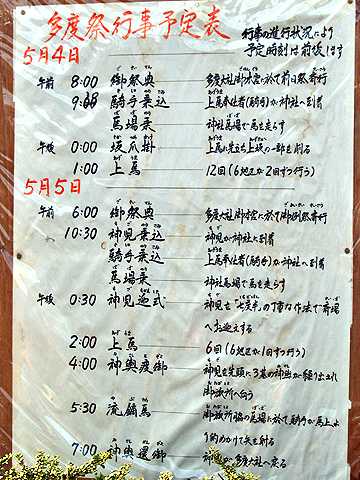 多度祭行事予定表
行事の進行状況により
予定時刻は前後します
5月4日
午前 8:00 御祭典 多度大社御本宮に於て前日祭斎行
9:00 騎手乗込 上馬奉仕者(騎手)が神社へ到着
馬場乗 神社馬場で馬を走らす
午後 0:00 坂爪掛 上馬に先立ち上坂の一部を削る
1:00 上馬 12回(6地区が2回ずつ行う)
5月5日
午前 6:00 御祭典 多度大社御本宮に於て御例祭斎行
10:30 神児乗込 神児が神社に到着
騎手乗込 上馬奉仕者(騎手)が神社へ到着
馬場乗 神社馬場で馬を走らす
午後 0:30 神児迎式 神児を「七度半」の丁重な作法で斎場
へお迎えする
2:00 上馬 6回(6地区が1回ずつ行う)
4:00 神輿渡御 神児を先頭に3基の神輿が繰り出され
御旅所へ向う
5:30 流鏑馬 御旅所脇の馬場に於て騎手が馬上より
的めがけて矢を射る
7:00 神輿還御 神輿が多度大社へ戻る